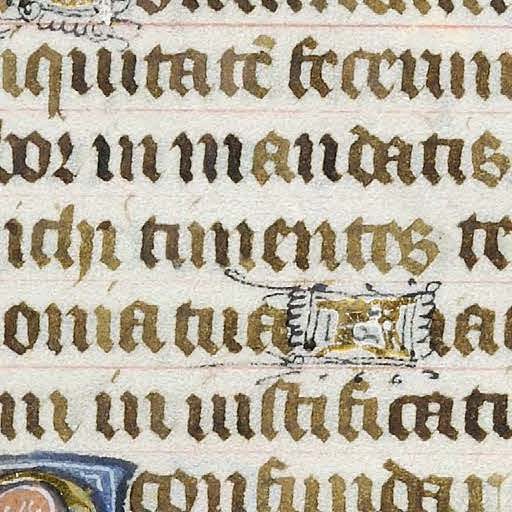 iquitatē fecerun
bor in mandatis
ichi timentes te
onia tua
in in iustificati
confundar